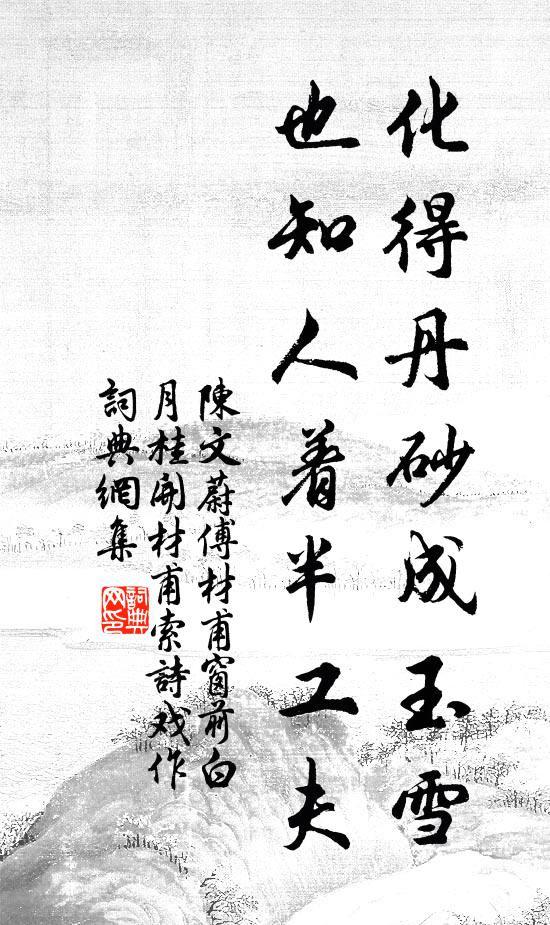 化得丹砂成玉雪
也知人着半工夫
陳文蔚傅材甫窗前白
月桂開材甫索詩戏作
詞典網集
詞典
网印